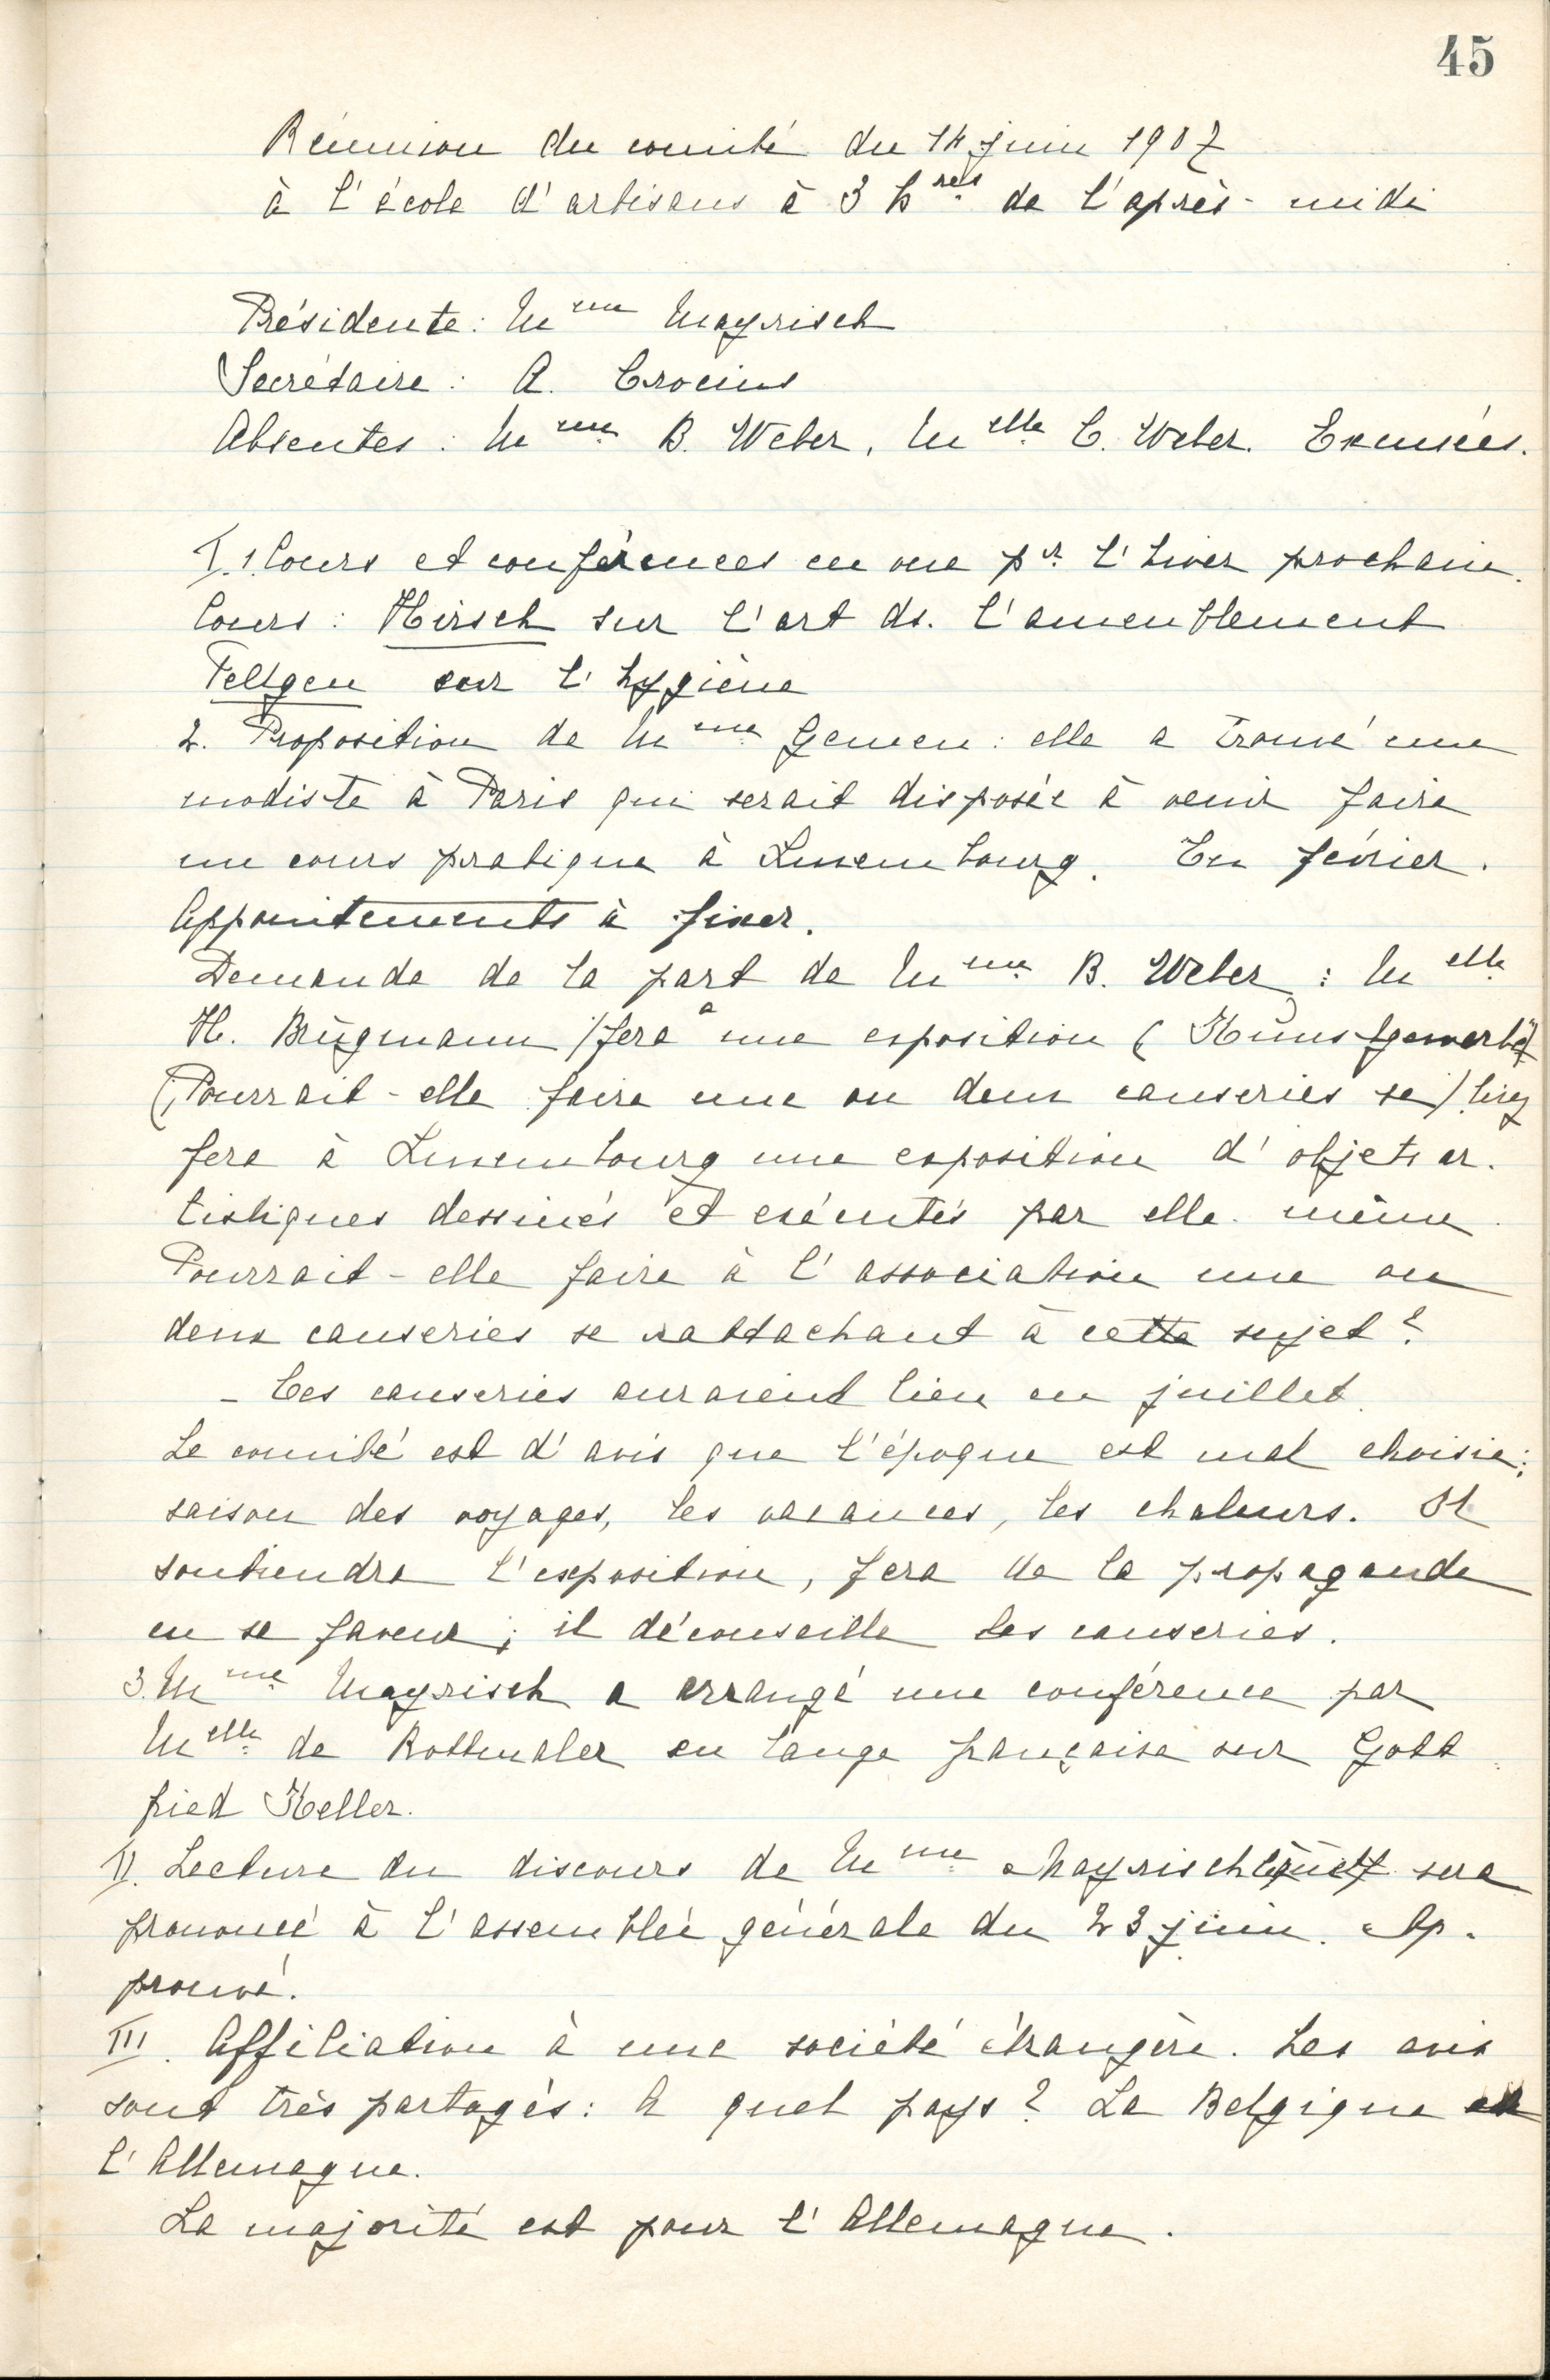 45
Réunion du comité du 14 juin 1907
à l'école d'artisans à 3 hres de l'après-midi
Présidente: Mme Mayrisch
Secrétaire: A. Crocius
Absentes: Mme B. Weber, Melle C. Weber. Excusées.
I. 1. Cours et conférences en vue pr l'hiver prochain.
Cours: Hirsch sur l'art ds. l'ameublement
Feltgen sur l'hygiène
2. Proposition de Mme Gemen: elle a trouvé une
modiste à Paris qui serait disposée à venir faire
un cours pratique à Luxembourg. En février.
Appointements à fixer.
Demande de la part de Mme B. Weber: Melle
H. Brügmann /fera a une exposition (Kunstgewerbe)
(Pourrait-elle faire une ou deux causeries se)
fera à Luxembourg une exposition d'objets ar-
tistiques dessinés et exécutés par elle-même
Pourrait-elle faire à l'association une ou
deux causeries se rattachant à cette sujet?
- Ces causeries auraient lieu en juillet.
Le comité est d'avis que l'époque est mal choisie:
saison des voyages, les vacances, les chaleurs. Il
soutiendra l'exposition, fera de la propagande
en sa faveur; il déconseille les causeries.
3. Mme Mayrisch a arrangé une conférence par
Melle de Rottmaler en lange française sur Gott
fried Keller.
II. Lecture du discours de Mme Mayrisch qui sera
prononcé à l'assemblée générale du 23 juin. Ap-
prouvé.
III. Affiliation à une société étrangère. Les avis
sont très partagés: A quel pays? La Belgique ou
l'Allemagne.
La majorité est pour l'Allemagne.